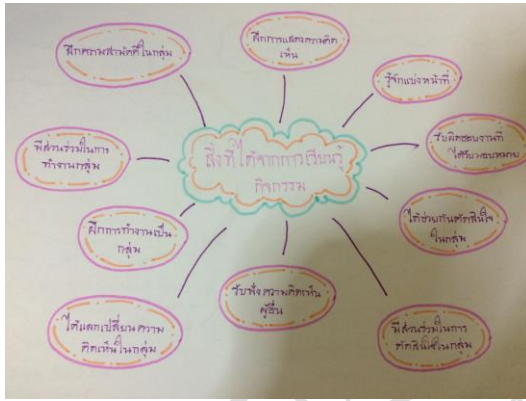 สิ่งที่ได้จากการเรียนรู้
กิจกรรม
ฝึกการแสดงความคิด
เห็น
รู้จักแบ่งหน้าที่
รับผิดชอบงานที่
ได้รับมอบหมาย
ได้ช่วยกันตัดสินใจ
ในกลุ่ม
มีส่วนร่วมในการ
ตัดสินใจในกลุ่ม
รับฟังความคิดเห็น
ผู้อื่น
ได้แลกเปลี่ยนความ
คิดเห็นในกลุ่ม
ฝึกการทำงานเป็น
กลุ่ม
มีส่วนร่วมในการ
ทำงานกลุ่ม
ฝึกความสามัคคีในกลุ่ม